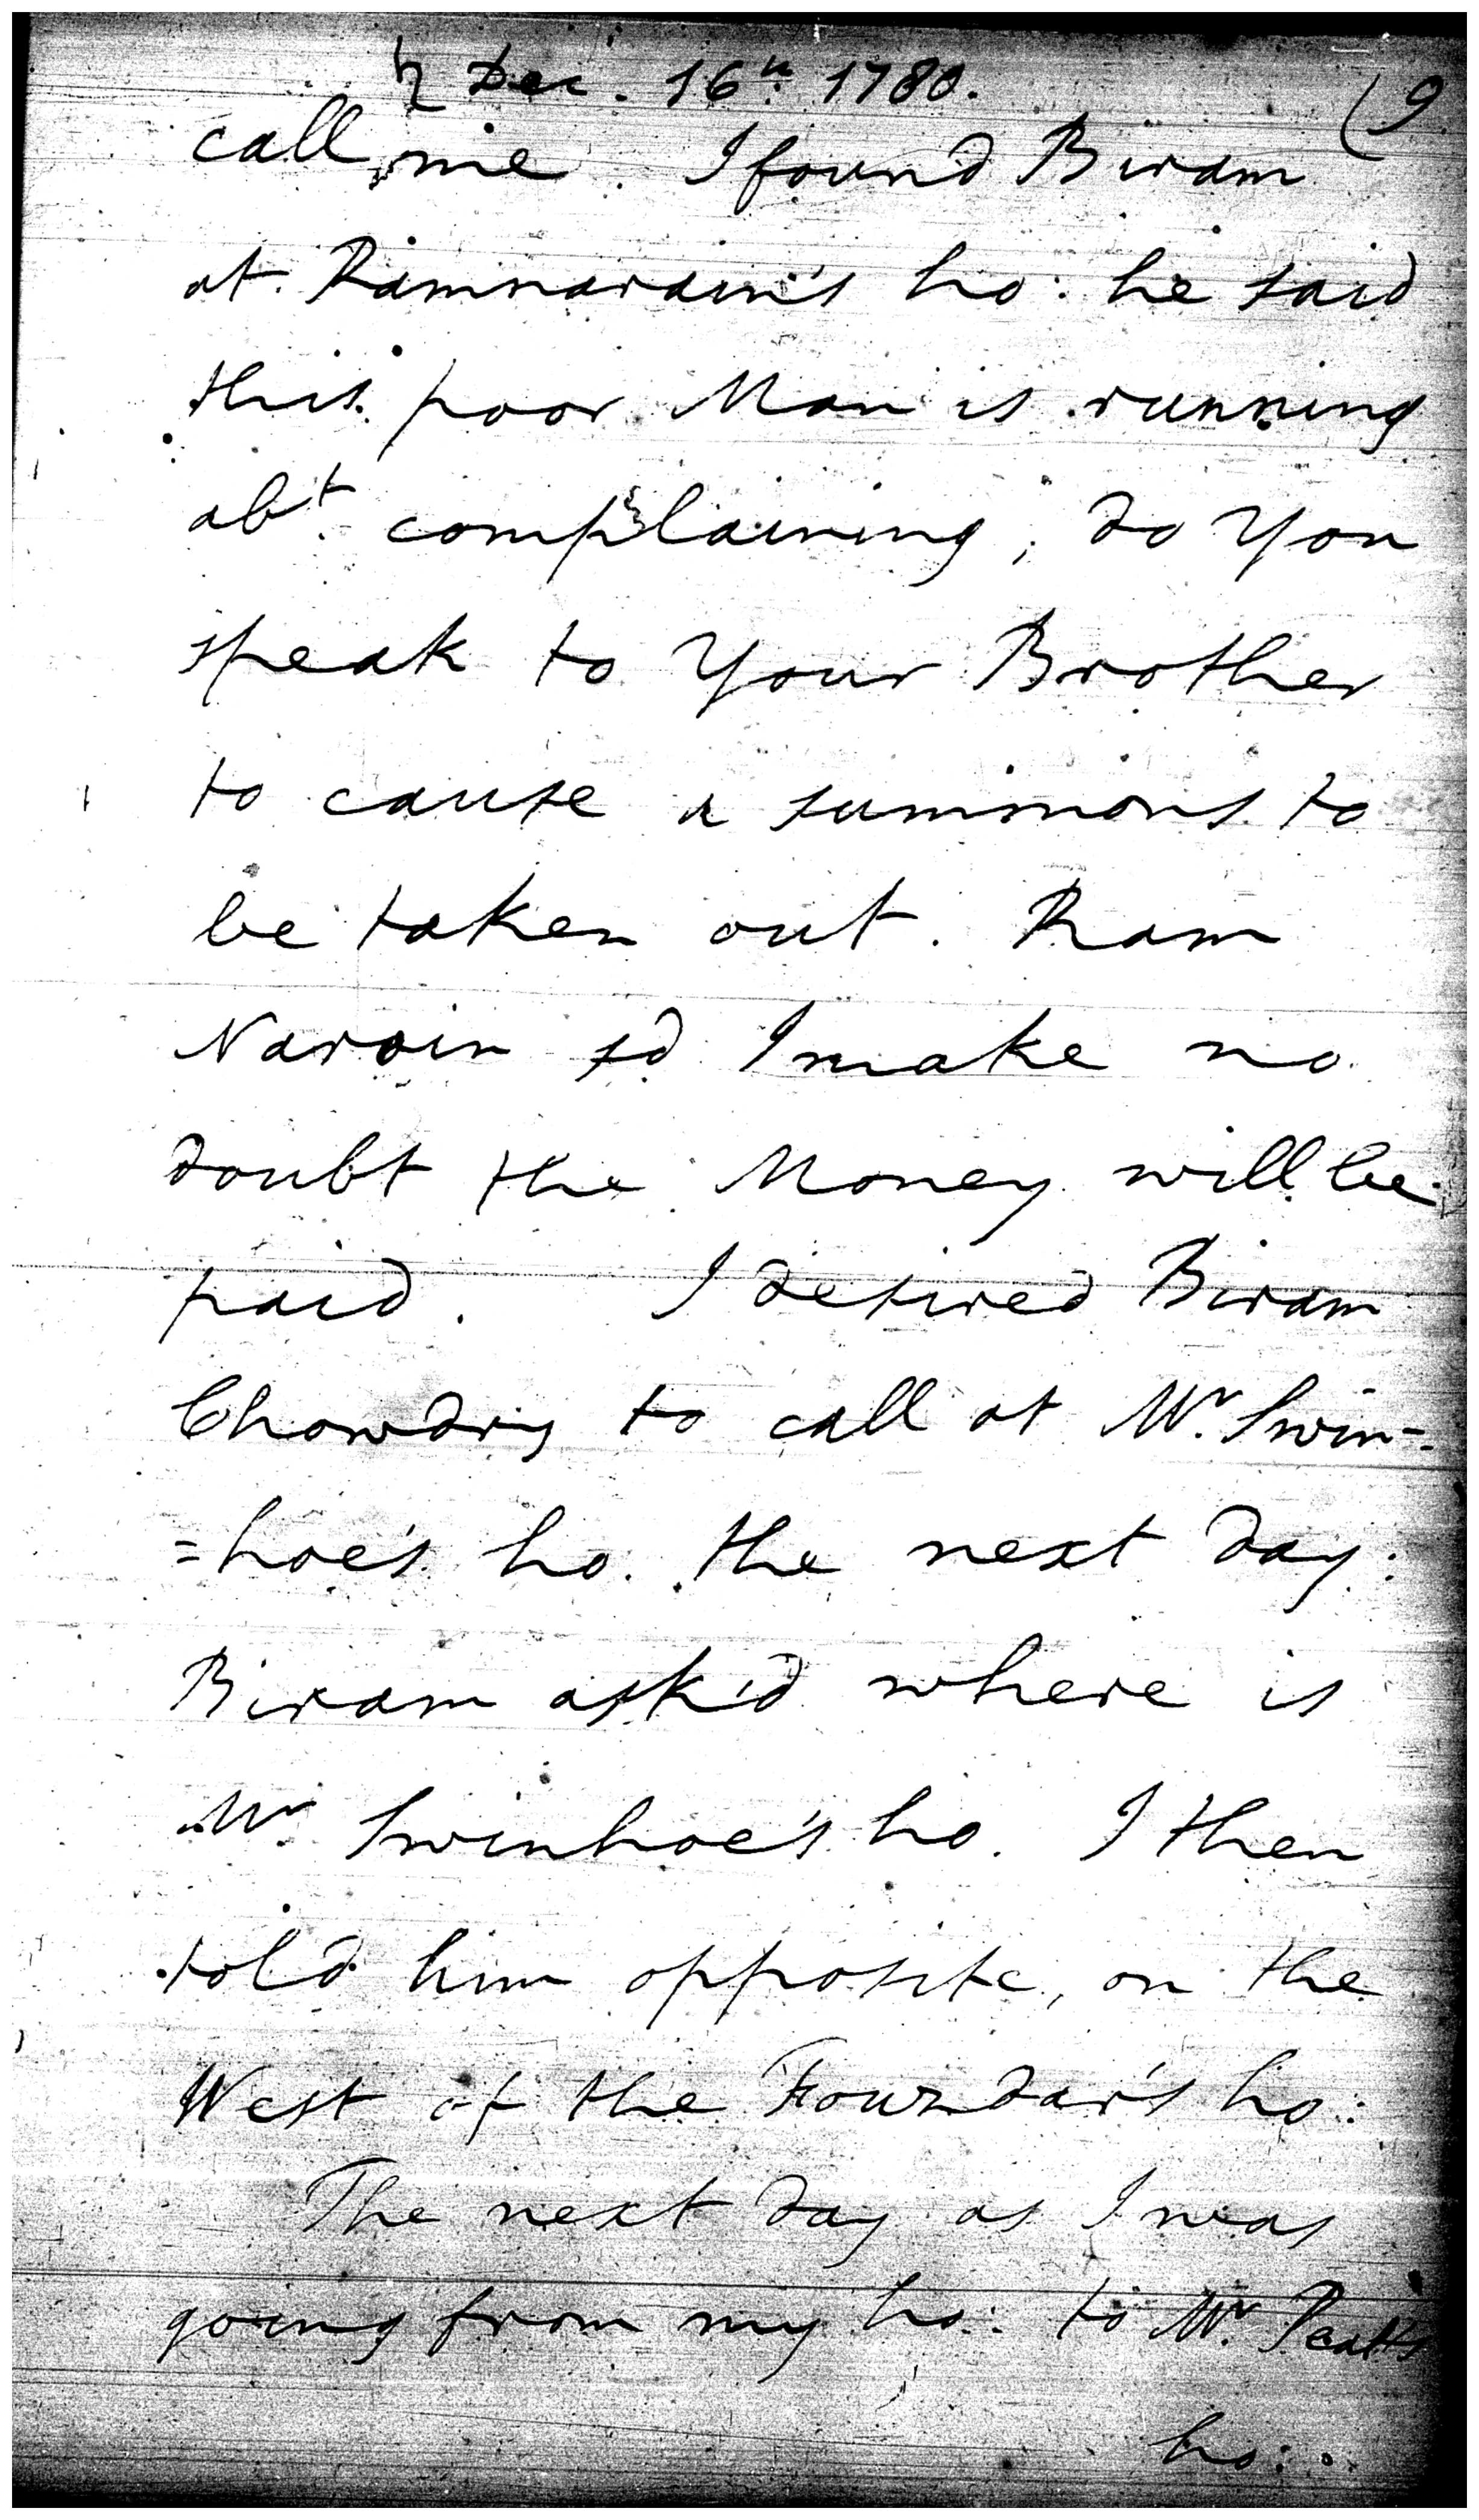 ♄ Dec. 16th. 1780. (9
call me. I found Biram
at Ramnarain's ho: he said
this poor Man is running
abt. complaining, do You
speak to Your Brother
to cause a summons to
be taken out. Ram
Narain sd I make no
doubt the Money will be
paid. I desired Biram
Chowdry to call at Mr. Swin-
=hoe's ho. the next day.
Biram ask'd where is
Mr. Swinhoe's ho. I then
told him opposite, on the
West of the Fouzdar's ho:
The next day as I was
going from my ho: to Mr.
ho: